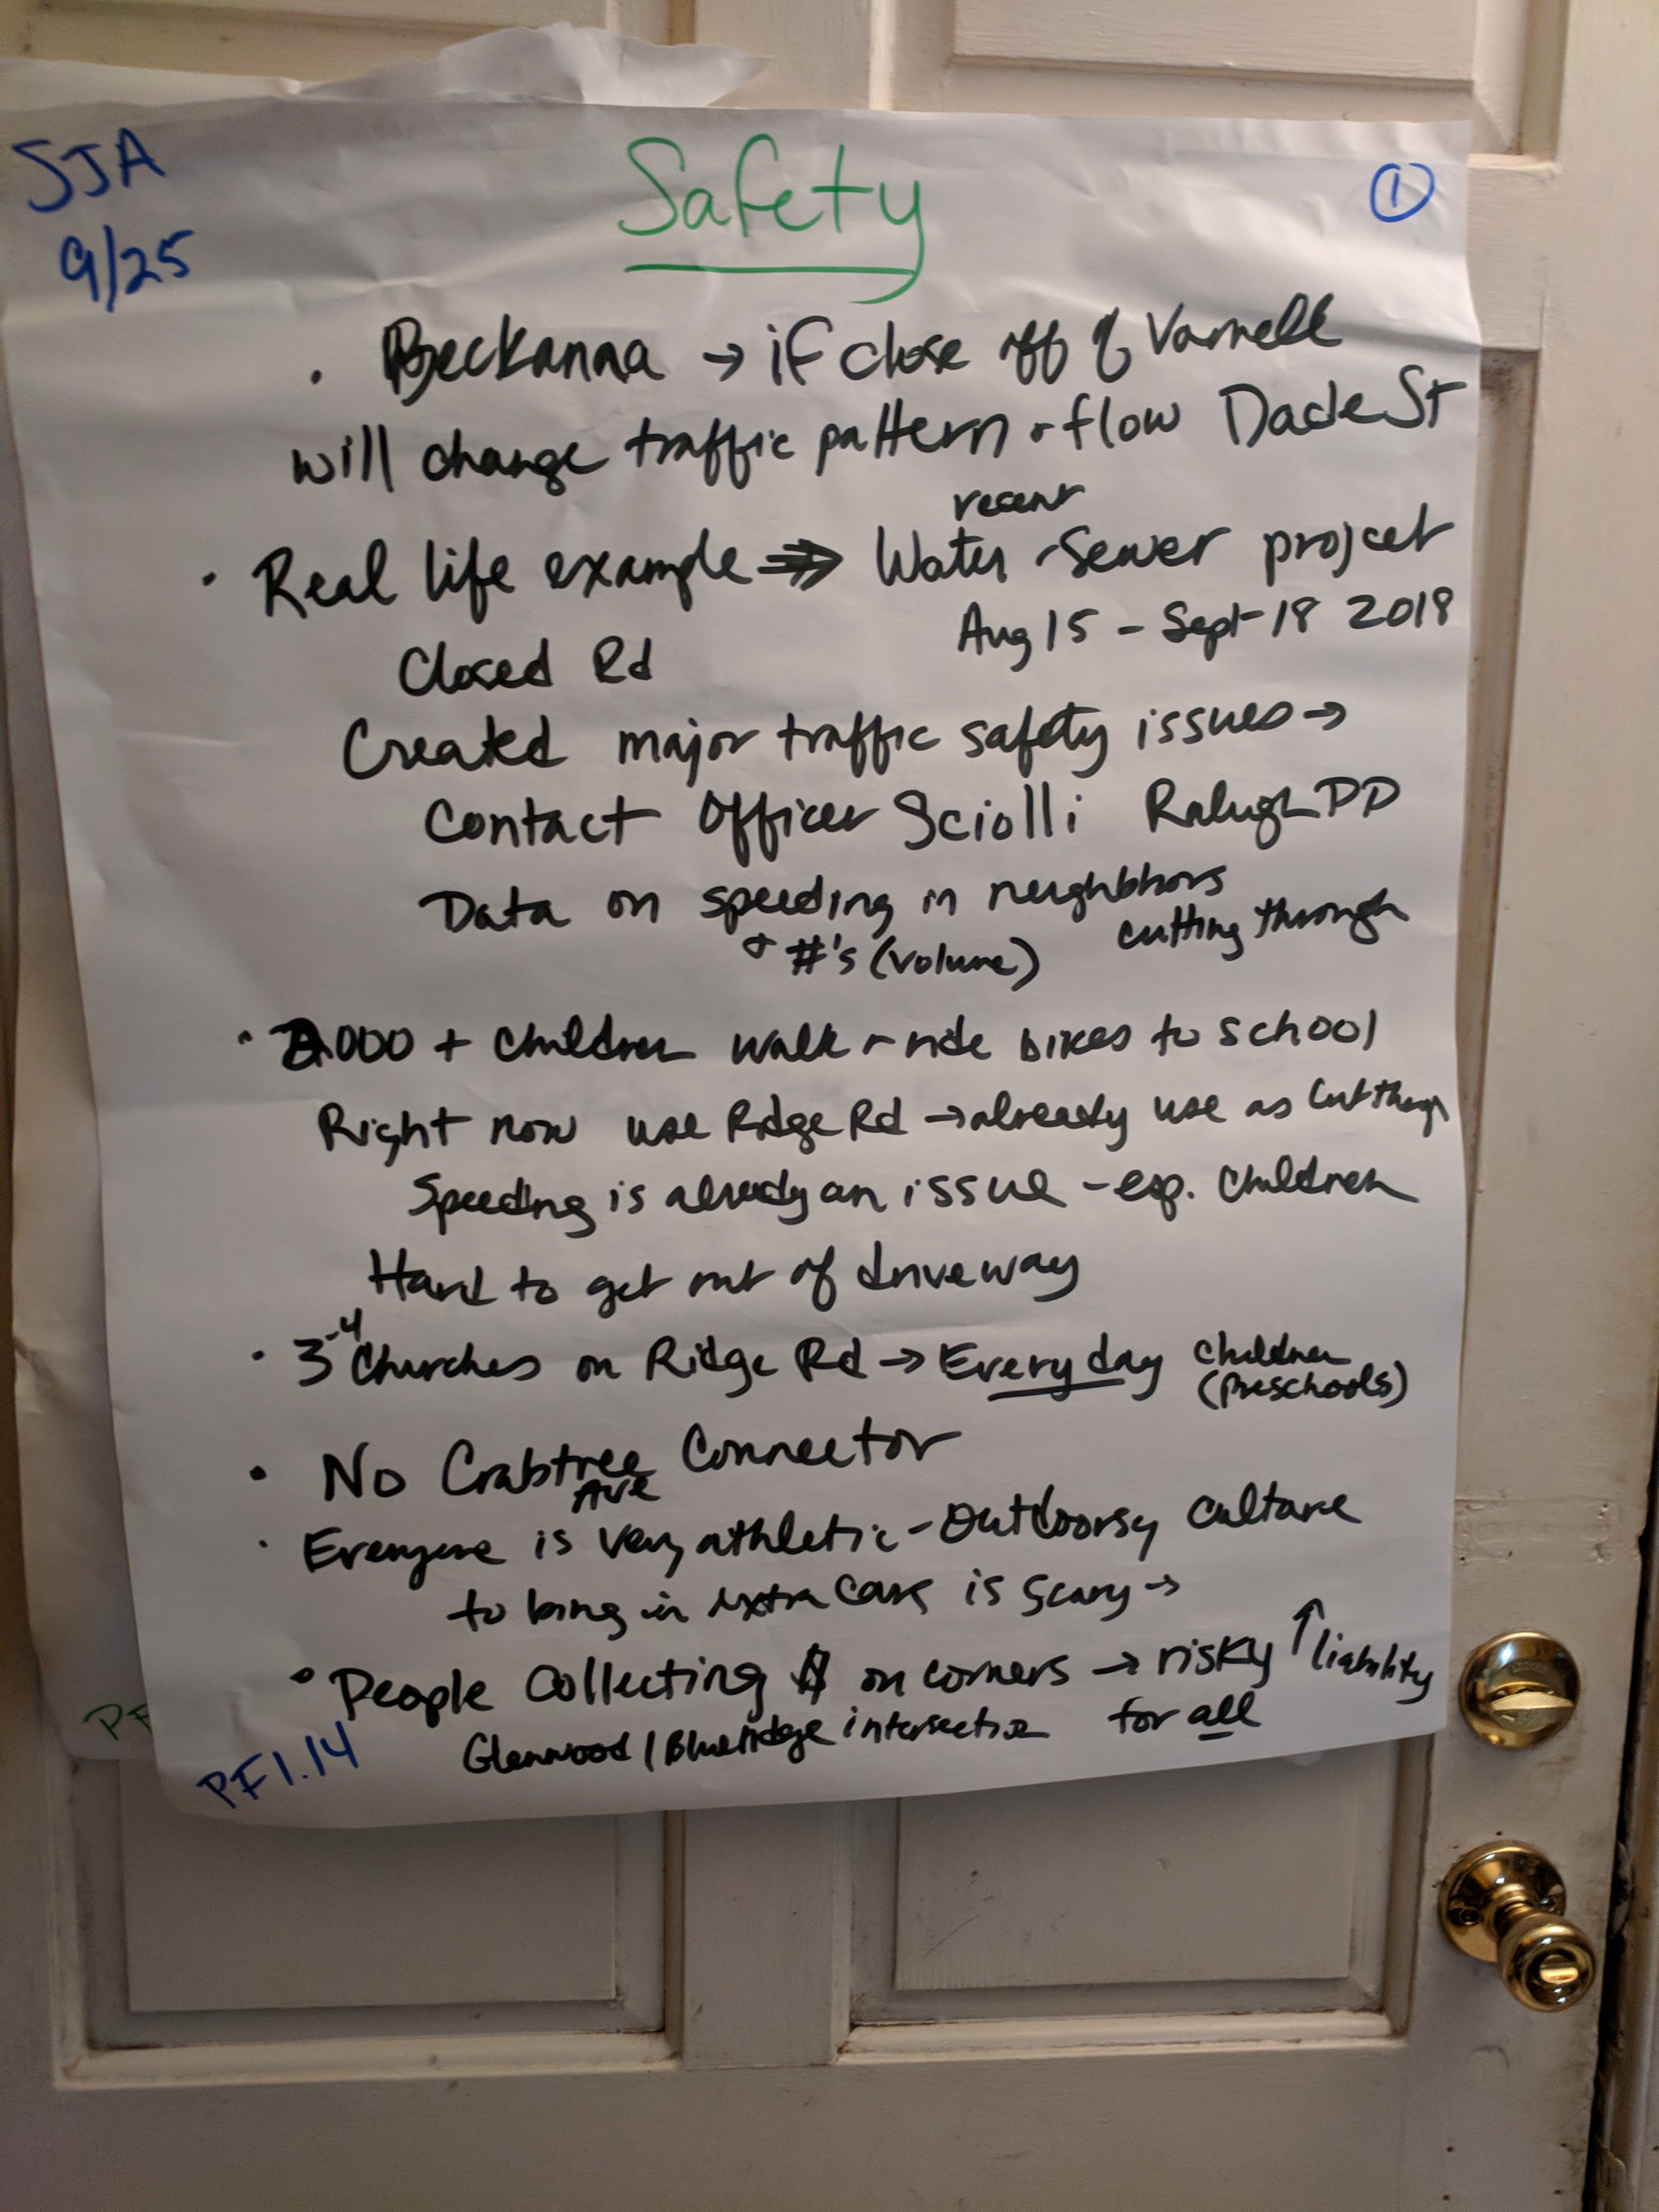 SJA
9/25
Safety
1
• Beckanna → if close off of Varnell
will change traffic pattern + flow Dade St
recent
• Real life example ⇒ Water + Sewer project
Aug 15 - Sept 18 2018
Closed Rd
Created major traffic safety issues →
Contact Officer Sciolli Raleigh PD
Data on speeding in neighbhors
cutting through
+ #'s (volume)
• 2000 + children walk + ride bikes to school
Right now use Ridge Rd → already use as cut through
Speeding is already an issue - esp. children
Hard to get out of driveway
• 3-4 Churches on Ridge Rd → Everyday children
(preschools)
• No Crabtree Connector
Ave
• Everyone is very athletic - Outdoorsy culture
to bring in extra cars is scary →
• People collecting $ on corners → risky ↑ liability
Glenwood / Blueridge intersection for all
PF1.14
PF